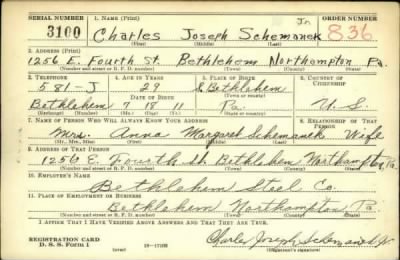 SERIAL NUMBER 1. NAME (Print) ORDER NUMBER
3100 Charles Joseph Schemanek Jr 836
(First) (Middle) (Last)
3. ADDRESS (Print)
1256 E. Fourth St. Bethlehem Northampton Pa.
(Number and street or R. F. D. number) (Town) (County) (State)
3. TELEPHONE 4. AGE IN YEARS 5. PLACE OF BIRTH 6. COUNTRY OF CITIZENSHIP
581-J 29 S Bethlehem
DATE OF BIRTH (Town or county)
Bethlehem 7 18 11 Pa. U. S.
(Exchange) (Mo.) (Day) (Yr.) (State or country)
7. NAME OF PERSON WHO WILL ALWAYS KNOW YOUR ADDRESS 8. RELATIONSHIP OF THAT PERSON
Mrs. Anna Margaret Schemanek Wife
(Mr., Mrs., Miss) (First) (Middle) (Last)
9. ADDRESS OF THAT PERSON
1256 E. Fourth St. Bethlehem Northampton Pa
(Number and street or R. F. D. number) (Town) (County) (State)
10. EMPLOYER'S NAME
Bethlehem Steel Co.
11. PLACE OF EMPLOYMENT OR BUSINESS
Bethlehem Northampton Pa
(Number and street or R. F. D. number) (Town) (County) (State)
I AFFIRM THAT I HAVE VERIFIED ABOVE ANSWERS AND THAT THEY ARE TRUE.
REGISTRATION CARD
D. S. S. FORM 1 (over) Charles Joseph Schemanek Jr.
(Registrant's signature)